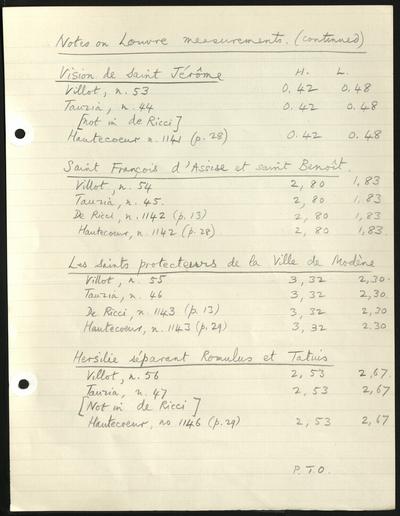 Notes on Louvre measurements. (continued)
Vision de Saint Jérôme H. L.
Villot, n. 53 0.42 0.48
Tauzia, n. 44 0.42 0.48
[not in de Ricci]
Hautecoeur n. 1141 (p.28) 0.42 0.48
Saint François d'Assise et saint Benoît.
Villot, n. 54 2,80 1,83
Tauzia, n. 45. 2,80 1,83
De Ricci, n. 1142 (p.13) 2,80 1,83
Hautecoeur, n. 1142 (p.28) 2,80 1,83.
Les Saints protecteurs de la Ville de Modène
Villot, n. 55 3,32 2,30.
Tauzia, n. 46 3,32 2,30.
De Ricci, n. 1143 (p.13) 3,32 2,30
Hautecoeur, n. 1143 (p.29) 3,32 2.30
Hersilie séparant Romulus et Tatius
Villot, n. 56 2,53 2,67.
Tauzia, n. 47 2,53 2,67
[Not in de Ricci]
Hautecoeur, no 1146 (p.29) 2,53 2,67
P.T.O.